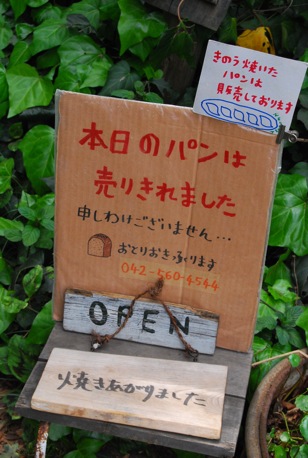 きのう焼いた
パンは
販売しております
本日のパンは
売りきれました
申しわけございません…
おとりおき承ります
042-560-4544
OPEN
焼きあがりました